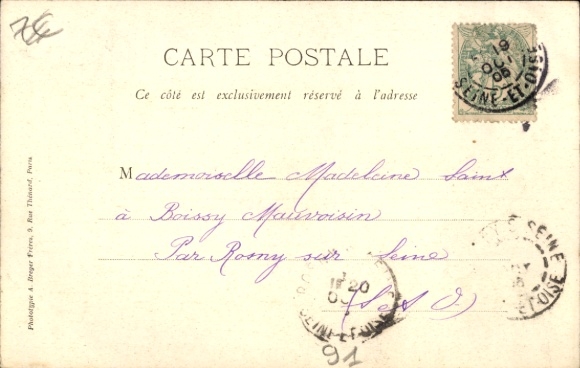 7€
CARTE POSTALE
Ce côté est exclusivement réservé à l'adresse
19
OCT
SEINE-ET-OISE
Mademoiselle Madeleine
à Boissy Mauvoisin
Par Rosny sur Seine
(S et O)
20
SEINE-ET-OISE
SEINE
ET-OISE
91
Phototypie A. Breger Frères, 9, Rue Thénard, Paris